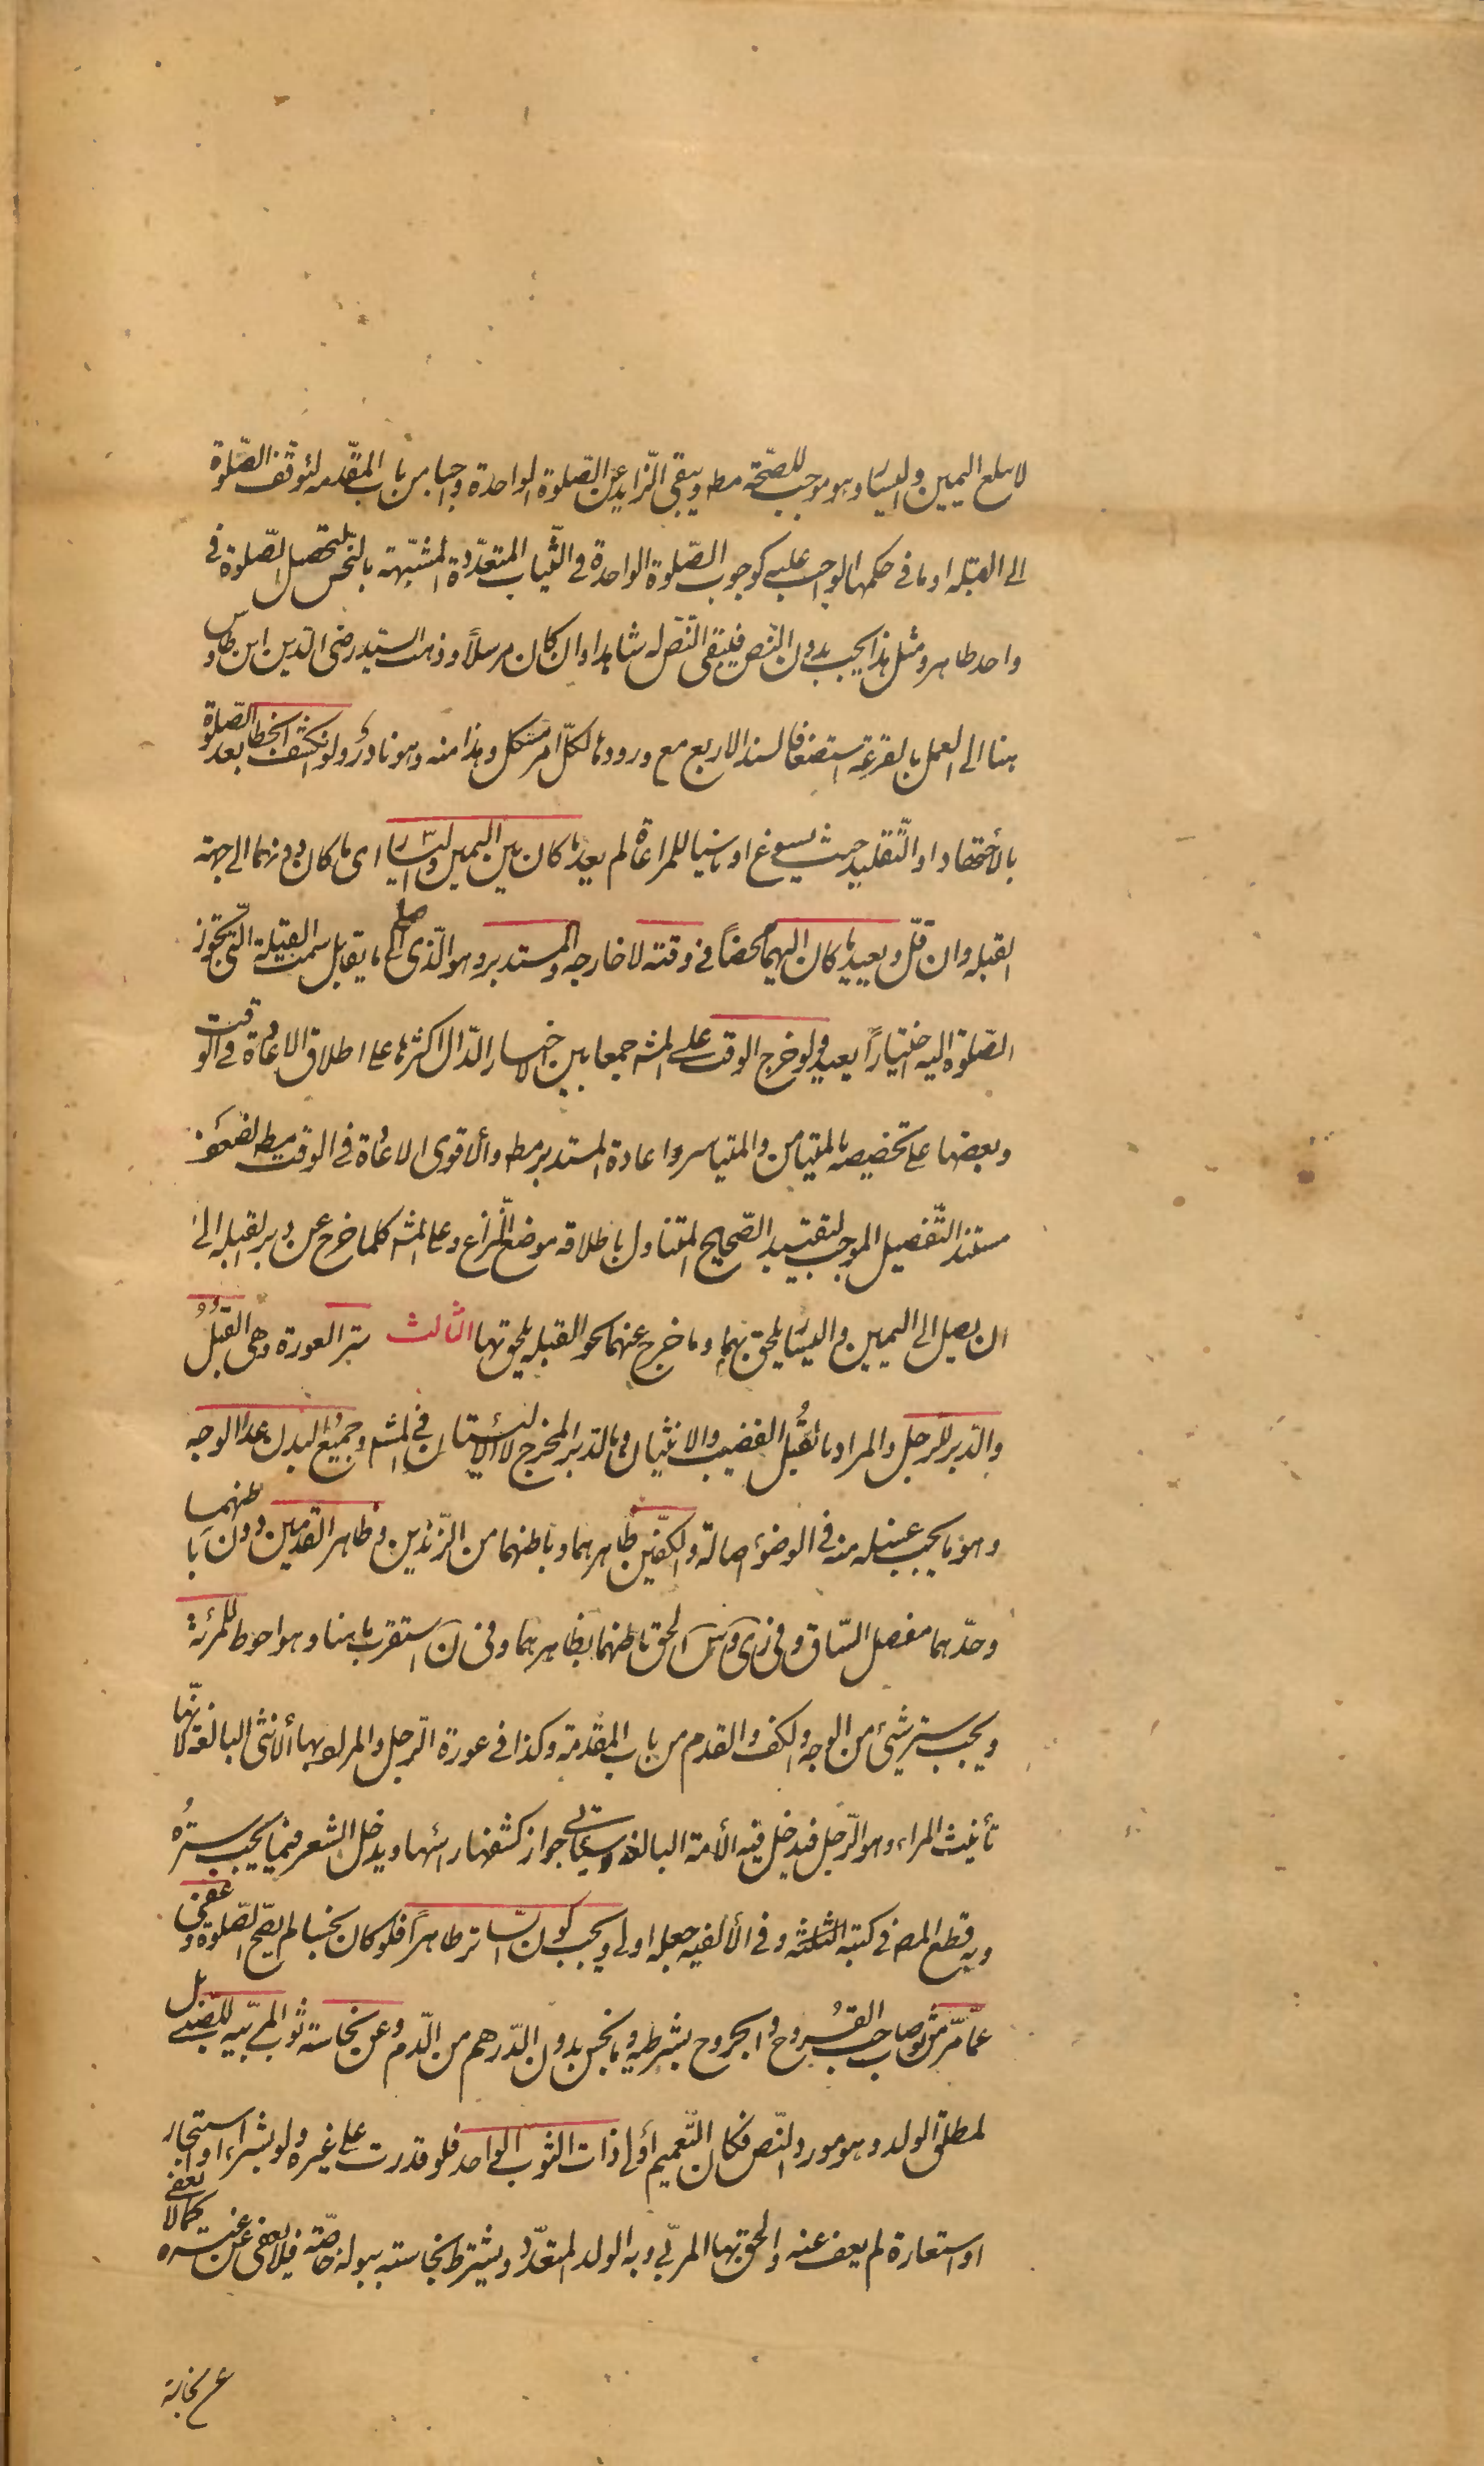 لا يبلغ اليمين واليسار وهو موجب للصحّة مط ويبقى الزايد عن الصّلوة الواحدة واجبا من باب المقدّمه لتوقف الصّلوة
الى القبله او ما فى حكمها الواجب عليه كوجوب الصّلوة الواحدة فى الثّياب المتعدّدة المشتبهة بالنّجس لتحصيل الصّلوة فى
واحد طاهر ومثل هذا يجب بدون النّص فيبقى النّص له شاهدا وان كان مرسلاً وذهب السيّد رضى الدين ابن طاوس
هنا الى العمل بالقرعة استضعافا لسند الاربع مع ورودها لكلّ امر مشكل وهذا منه وهو نادر ولو انكشف الخطا بعد الصّلوة
بالأجتهاد او التّقليد حيث يسوغ او ناسيا للمراعاة لم يعد ما كان بين اليمين واليسار اى ما كان دونهما الى جهة
القبله وان قلّ ويعيد ما كان اليهما محضاً فى وقته لا خارجه والمستدبر وهو الّذى صلى الى ما يقابل سمت القبلة الّتى يجوز
الصّلوة اليه اختياراً يعيد ولو خرج الوقت على المشه جمعا بين الاخبار الدّال اكثرها على اطلاق الاعادة فى الوقت
وبعضها على تخصيصه بالمتيامن والمتياسر واعادة المستدبر مط والأقوى الاعادة فى الوقت مط لضعف
مستند التّفصيل الموجب لتقييد الصّحيح المتناول باطلاقه موضع النّزاع وعلى المشه كلما خرج عن دبر القبله الى
ان يصل الى اليمين واليسار يلحق بهما وما خرج عنهما نحو القبله يلحق بها الثالث ستر العورة وهى القُبُلُ
والدّبر للرجل والمراد بالقُبُل القضيب والانثيان وبالدّبر المخرج لا الأليتان فى المشه وجميعُ البدن عدا الوجه
وهو ما يجب غسله منه فى الوضوء اصالة والكفّين ظاهرهما وباطنهما من الزّندين وظاهر القدمين دون باطنهما
وحدّهما مفصل السّاق وفى زى وس الحق باطنهما بظاهرهما وفى ن استقرب ما هنا وهو احوط للمرئة
ويجب ستر شئ من الوجه والكف والقدم من باب المقدمة وكذا فى عورة الرّجل والمراد بها الأنثى البالغة لانّها
تأنيث المراء وهو الرّجل فيدخل فيه الأمة البالغة وسياتى جواز كشفها راسها ويدخل الشعر فيما يجب سترُه
وبه قطع المص فى كتبه الثلثة وفى الألفيه جعله اولى ويجب كون السّاتر طاهراً فلو كان نجسا لم تصح الصّلوة وعفى
عمّا مرّ من ثوب صاحب القروح والجروح بشرطه وما نجس بدون الدّرهم من الدّم وعن نجاسة ثوب المربّيه للصّبى بل
لمطلق الولد وهو مورد النّص فكان التّعميم أولى ذات الثوب الواحد فلو قدرت على غيره ولو بشراء او استيجار
او استعارة لم يعف عنه والحق بها المربّى وبه الولد المتعدّد ويشترط نجاسته ببوله خاصّة فلا يعفى عن غيره كما لا يعفى
عن نجاسة